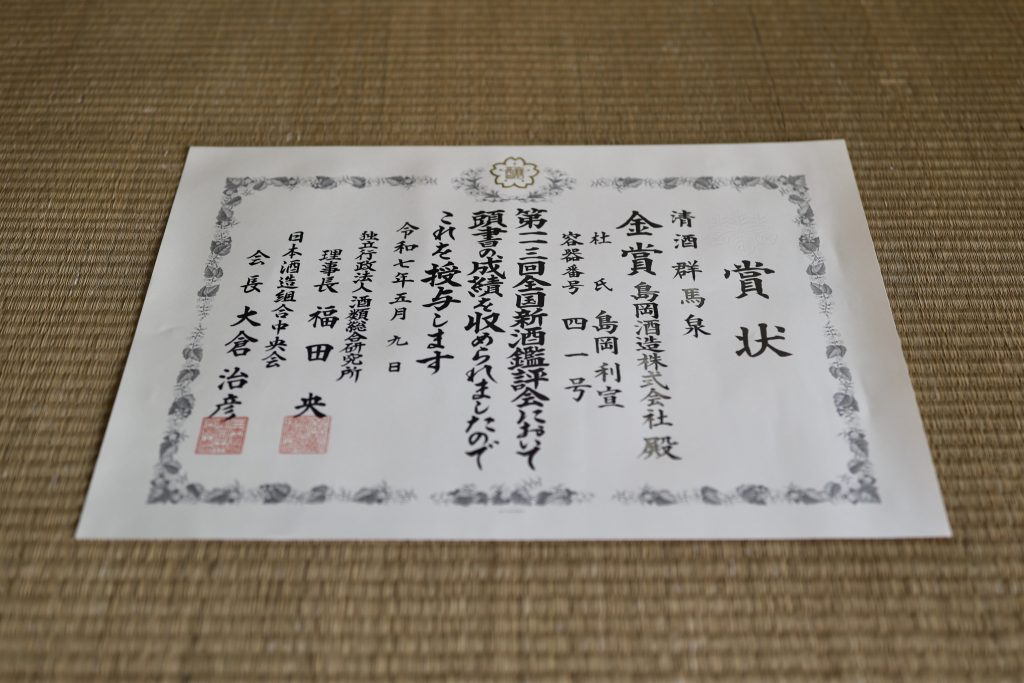 賞状
清酒群馬泉
金賞 島岡酒造株式会社 殿
杜氏 島岡利宣
容器番号 四一号
第一一三回全国新酒鑑評会において
頭書の成績を収められましたので
これを授与します
令和七年五月九日
独立行政法人酒類総合研究所
理事長 福田央
日本酒造組合中央会
会長 大倉治彦